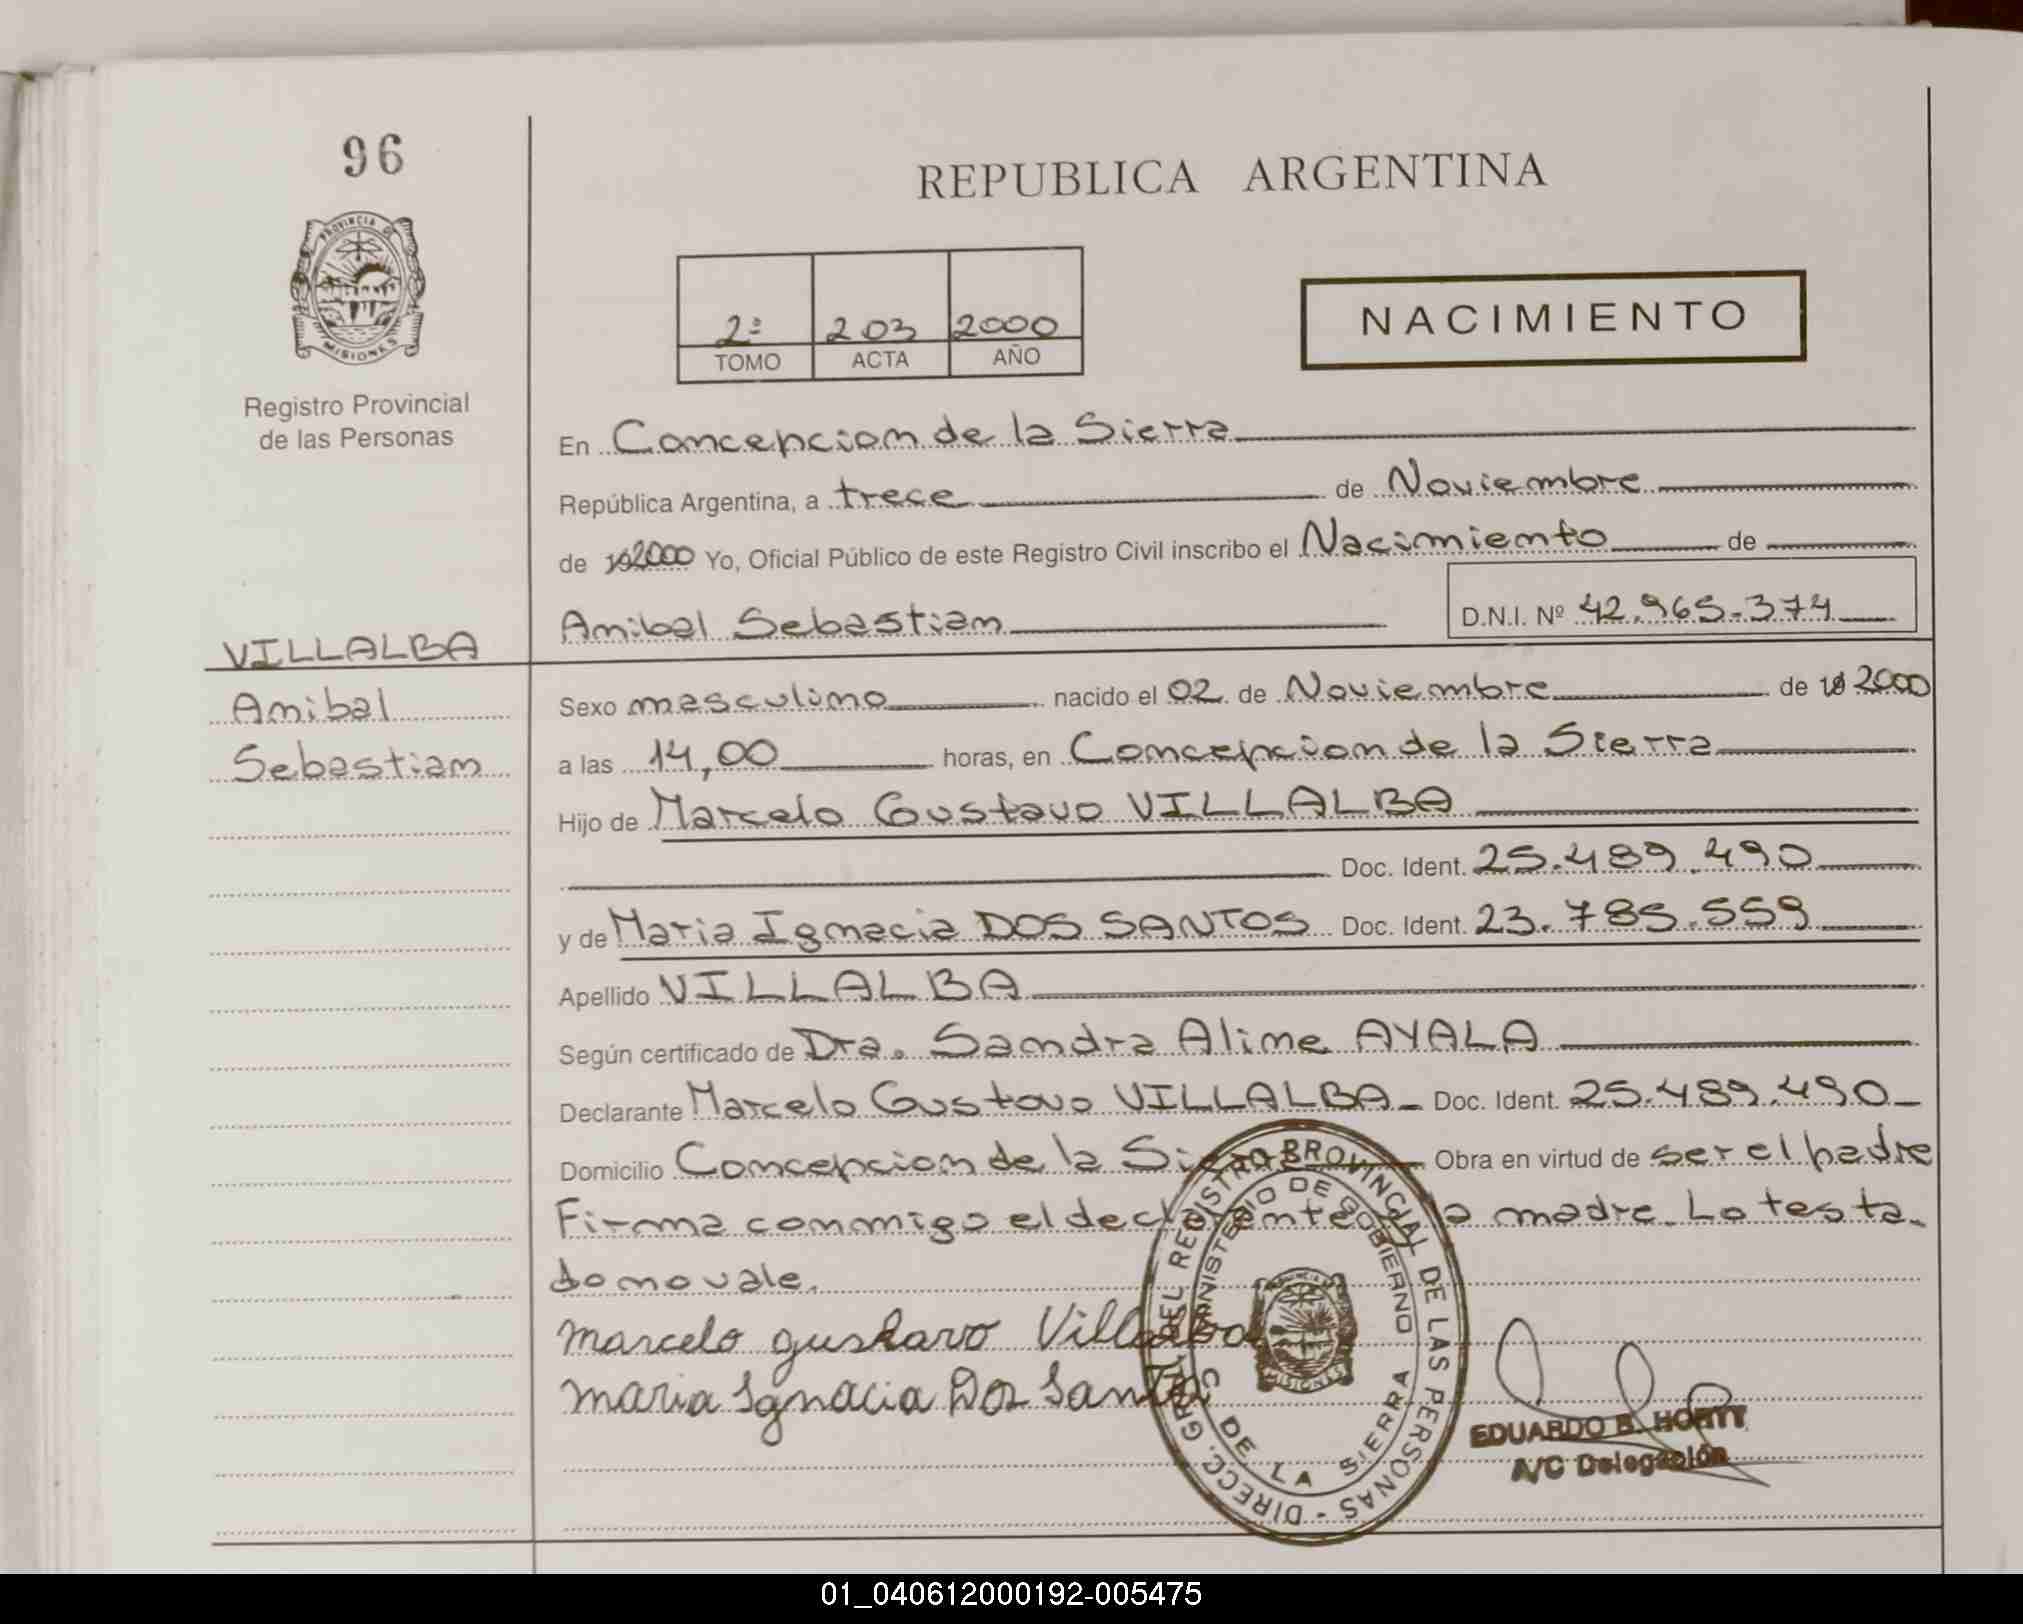 96
REPUBLICA ARGENTINA
PROVINCIA DE
MISIONES
Registro Provincial
de las Personas
2ª 203 2000
TOMO ACTA AÑO
NACIMIENTO
En Concepcion de la Sierra
República Argentina, a trece de Noviembre
de 2000 Yo, Oficial Público de este Registro Civil inscribo el Nacimiento de
Anibal Sebastian D.N.I. Nº 42.965.374
VILLALBA
Anibal
Sebastian
Sexo masculino nacido el 02 de Noviembre de 2000
a las 14,00 horas, en Concepcion de la Sierra
Hijo de Marcelo Gustavo VILLALBA
Doc. Ident. 25.489.490
y de Maria Ignacia DOS SANTOS Doc. Ident. 23.785.559
Apellido VILLALBA
Según certificado de Dra. Sandra Aline AYALA
Declarante Marcelo Gustavo VILLALBA Doc. Ident. 25.489.490
Domicilio Concepcion de la Sierra Obra en virtud de ser el padre
Firma conmigo el declarante y la madre. Lo testa-
do no vale.
marcelo gustavo Villalba
maria Ignacia Dos Santos
DIRECC. GRAL. DEL REGISTRO PROVINCIAL DE LAS PERSONAS -
MINISTERIO DE GOBIERNO
C. DE LA SIERRA
MISIONES
EDUARDO B. HORTT
A/C Delegación
01_040612000192-005475